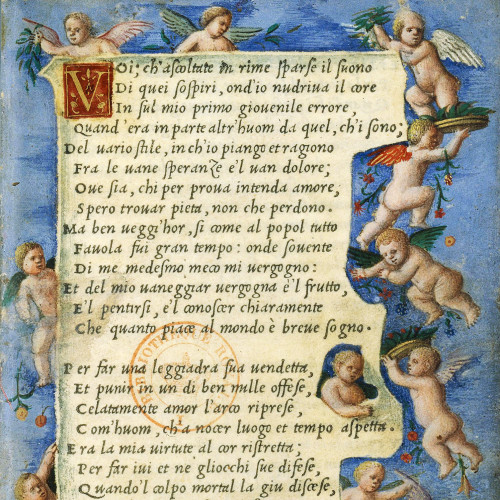 Voi; ch'ascoltate in rime sparse il suono
Di quei sospiri, ond'io nudriua il core
In sul mio primo giouenile errore,
Quand'era in parte altr'huom da quel, ch'i sono;
Del uario stile, in ch'io piango et ragiono
Fra le uane speranze e'l uan dolore;
Oue sia, chi per proua intenda amore,
Spero trouar pieta, non che perdono.
Ma ben ueggi'hor, si come al popol tutto
Fauola fui gran tempo: onde souente
Di me medesmo meco mi uergogno:
Et del mio uaneggiar uergogna è'l frutto,
E'l pentirsi, e'l conoscer chiaramente
Che quanto piace al mondo è breue sogno.
Per far una leggiadra sua uendetta,
Et punir in un di ben mille offese,
Celatamente amor l'arco riprese,
Com'huom, ch'a nocer luogo et tempo aspetta.
Era la mia uirtute al cor ristretta;
Per far iui et ne gliocchi sue difese,
Quando'l colpo mortal la giu discese,